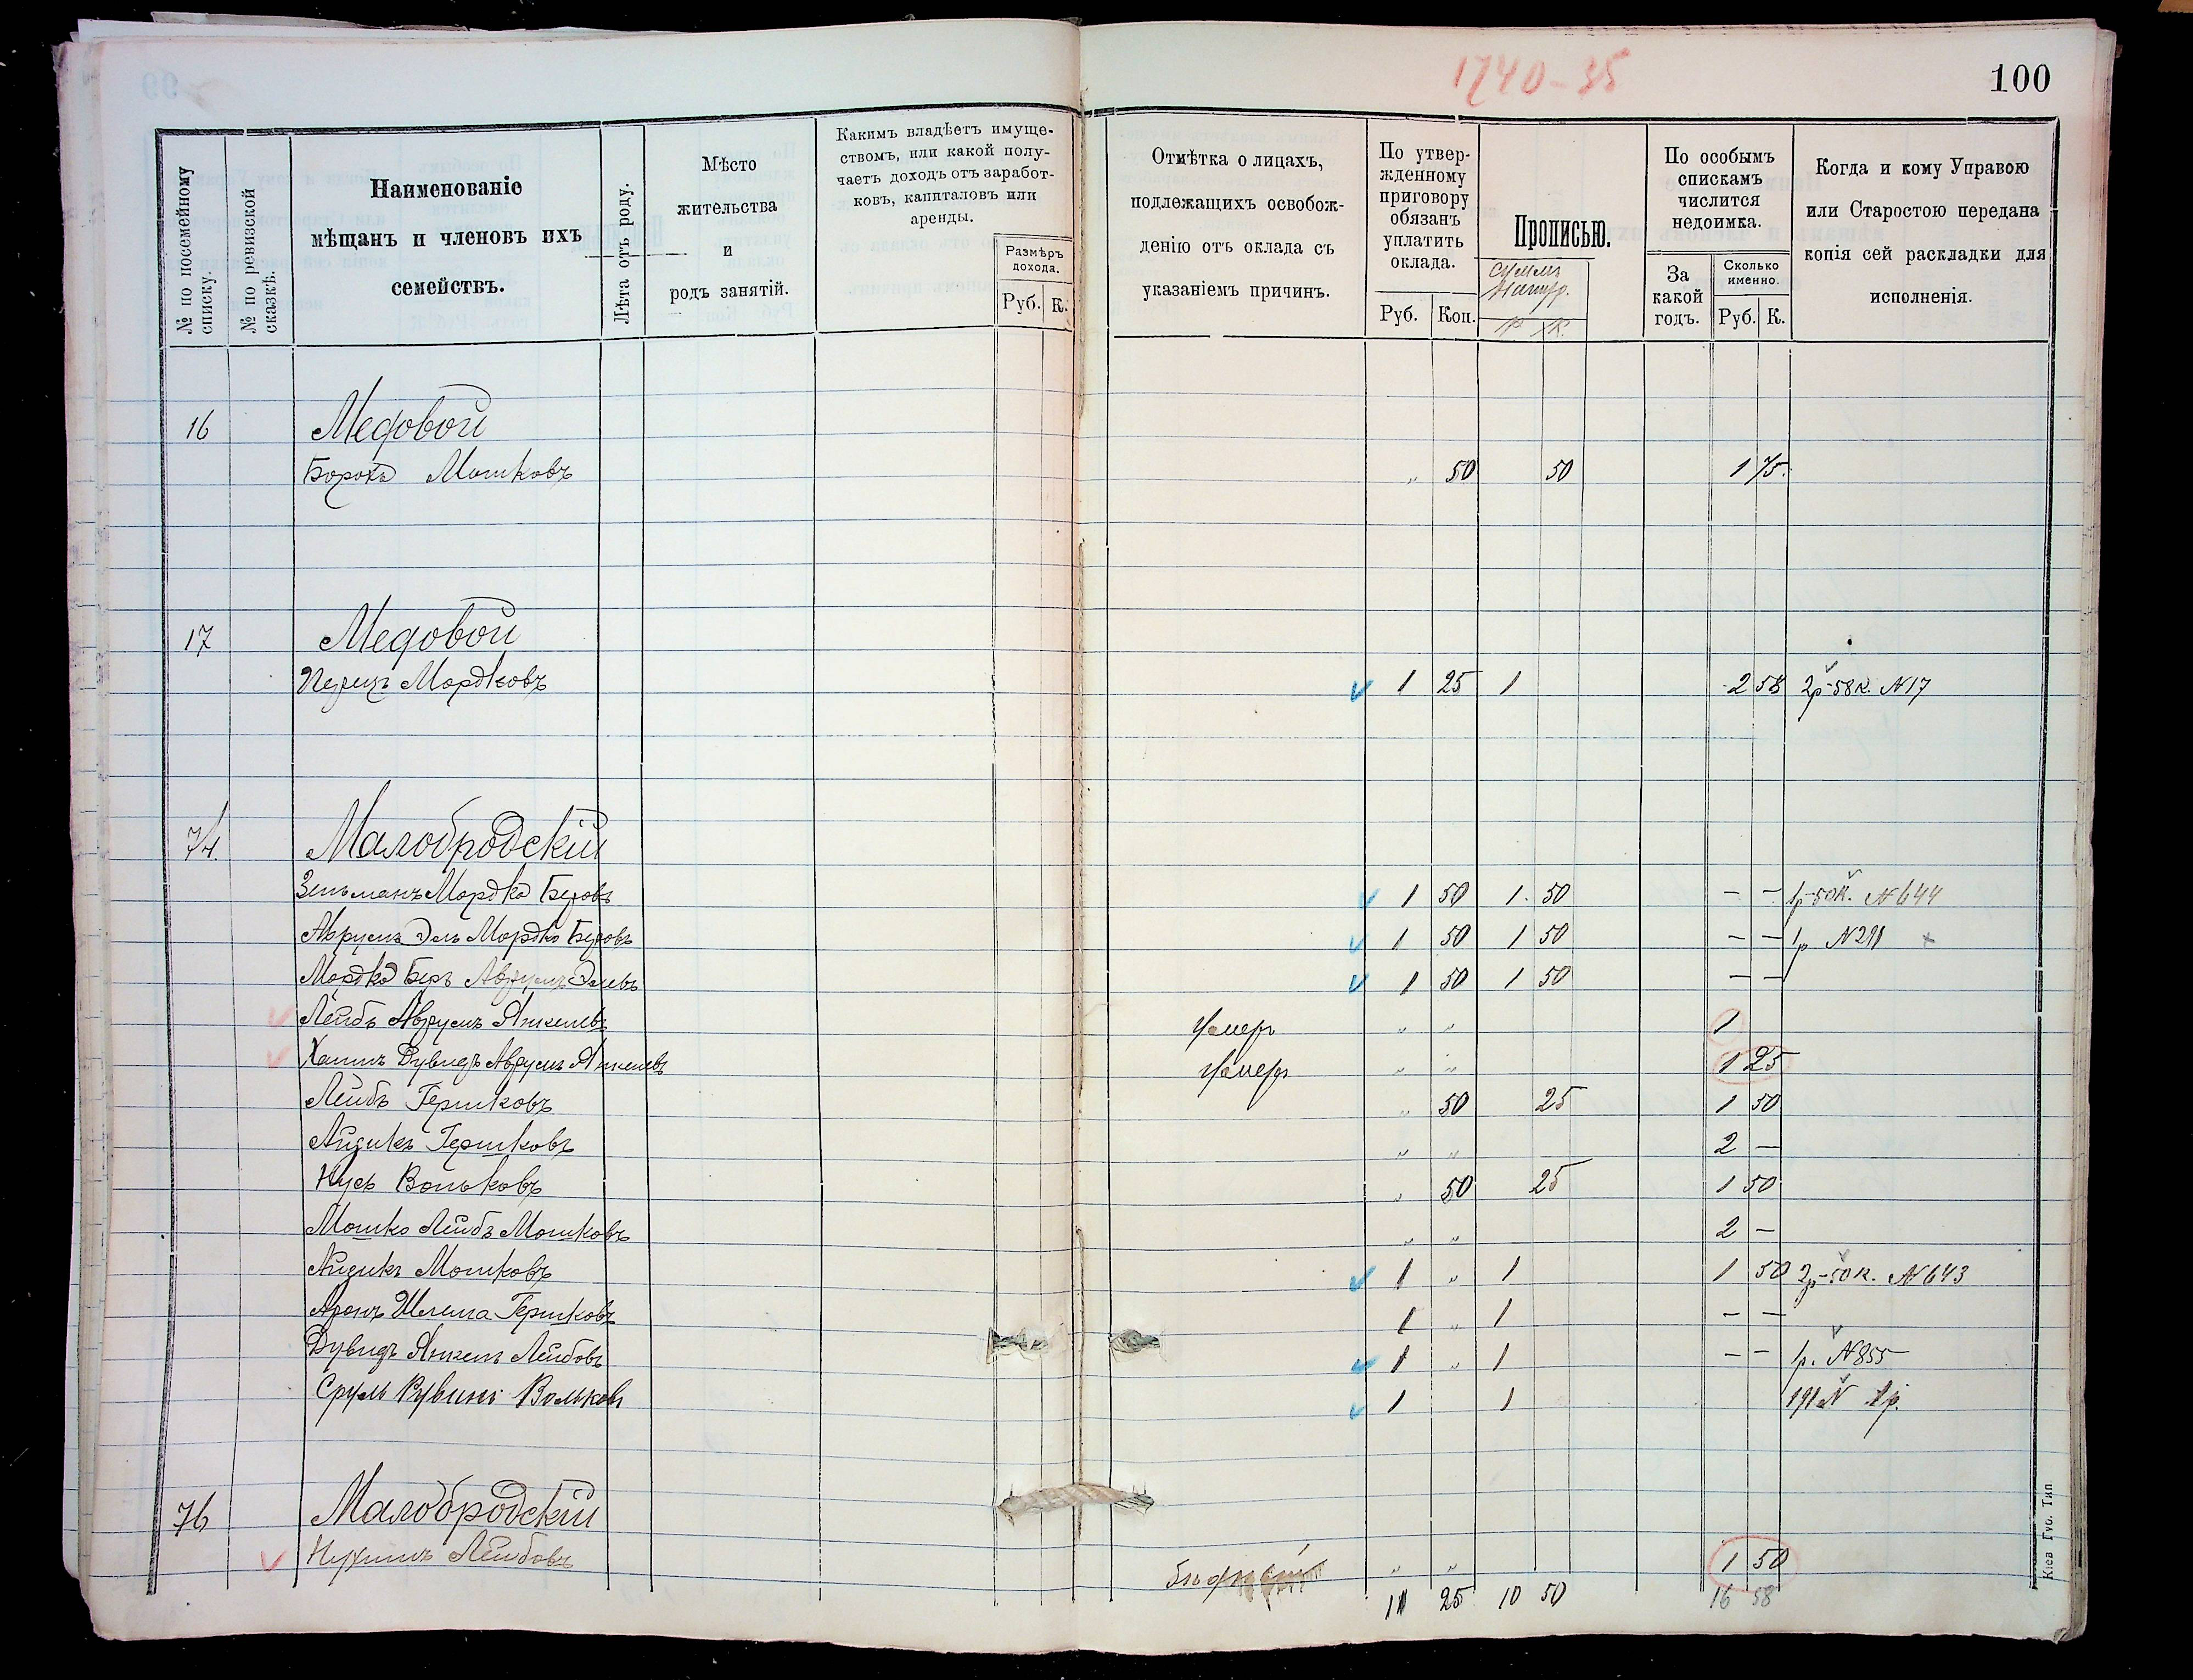 1740-35
100
№ по посемейному списку.
№ по ревизской сказкѣ.
Наименованіе
мѣщанъ и членовъ ихъ
семействъ.
Лѣта отъ роду.
Мѣсто
жительства
и
родъ занятій.
Какимъ владѣетъ имуще-
ствомъ, или какой полу-
чаетъ доходъ отъ заработ-
ковъ, капиталовъ или
аренды.
Размѣръ
дохода.
Руб. К.
Отмѣтка о лицахъ,
подлежащихъ освобож-
денію отъ оклада съ
указаніемъ причинъ.
По утвер-
жденному
приговору
обязанъ
уплатить
оклада.
Руб. Коп.
Прописью.
По особымъ
спискамъ
числится
недоимка.
За
какой
годъ.
Сколько
именно.
Руб. К.
Когда и кому Управою
или Старостою передана
копія сей раскладки для
исполненія.
16 Медовой
Борохъ Мошковъ „ 50 50 1 75
17 Медовой
Перецъ Мордковъ 1 25 1 2 58 2р-58к. N17
74 Малобродскій
Зельманъ Мордко Беровъ 1 50 1 50 — — 1р-50к. N644
Аврумъ Эль Мордко Беровъ 1 50 1 50 — — 1р N291
Мордко Беръ Аврумъ Элевъ 1 50 1 50 — —
Лейбъ Аврумъ Янкелевъ Умеръ „ „ 1
Хаимъ Дувидъ Аврумъ Янкелевъ Умеръ „ „ 1 25
Лейбъ Гершковъ „ 50 25 1 50
Айзикъ Гершковъ „ „ 2 —
Нусь Вольковъ „ 50 25 1 50
Мошко Лейбъ Мошковъ „ „ 2 —
Айзикъ Мошковъ 1 „ 1 1 50 2р-50к. N643
Аронъ Шлема Гершковъ 1 „ 1 — —
Дувидъ Янкель Лейбовъ 1 „ 1 — — 1р. N855
Сруль Рувинъ Вольковъ 1 1 191N 1р.
76 Малобродскій
Нухимъ Лейбовъ „ „ 1 50
11 25 10 50 16 58
Кіев Гус. Тип